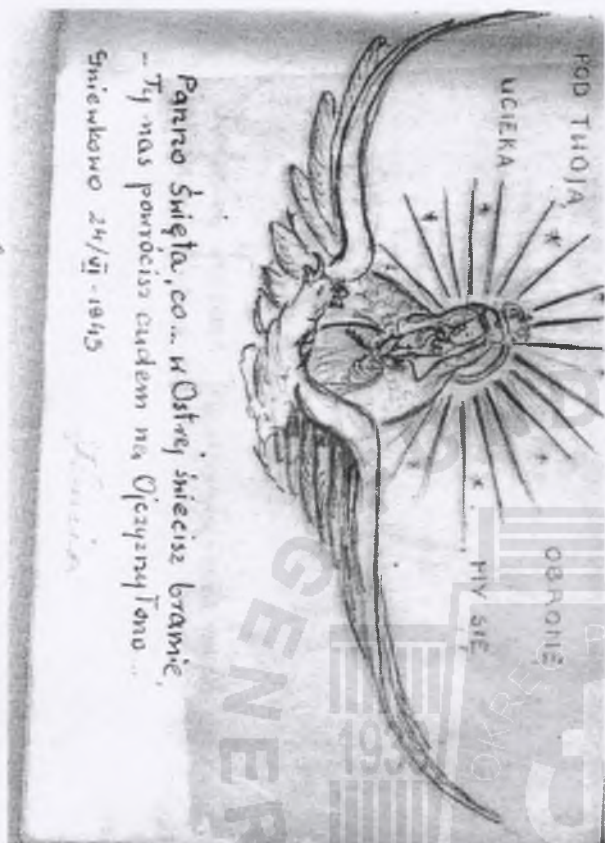 POD TWOJĄ OBRONĘ
UCIEKA MY SIĘ
Panno Święta, co... w Ostrej świecisz bramie,
- Ty nas powrócisz cudem na Ojczyzny łono...
Gniewkowo 24/VI-1943
GENER
193
OKRĘG